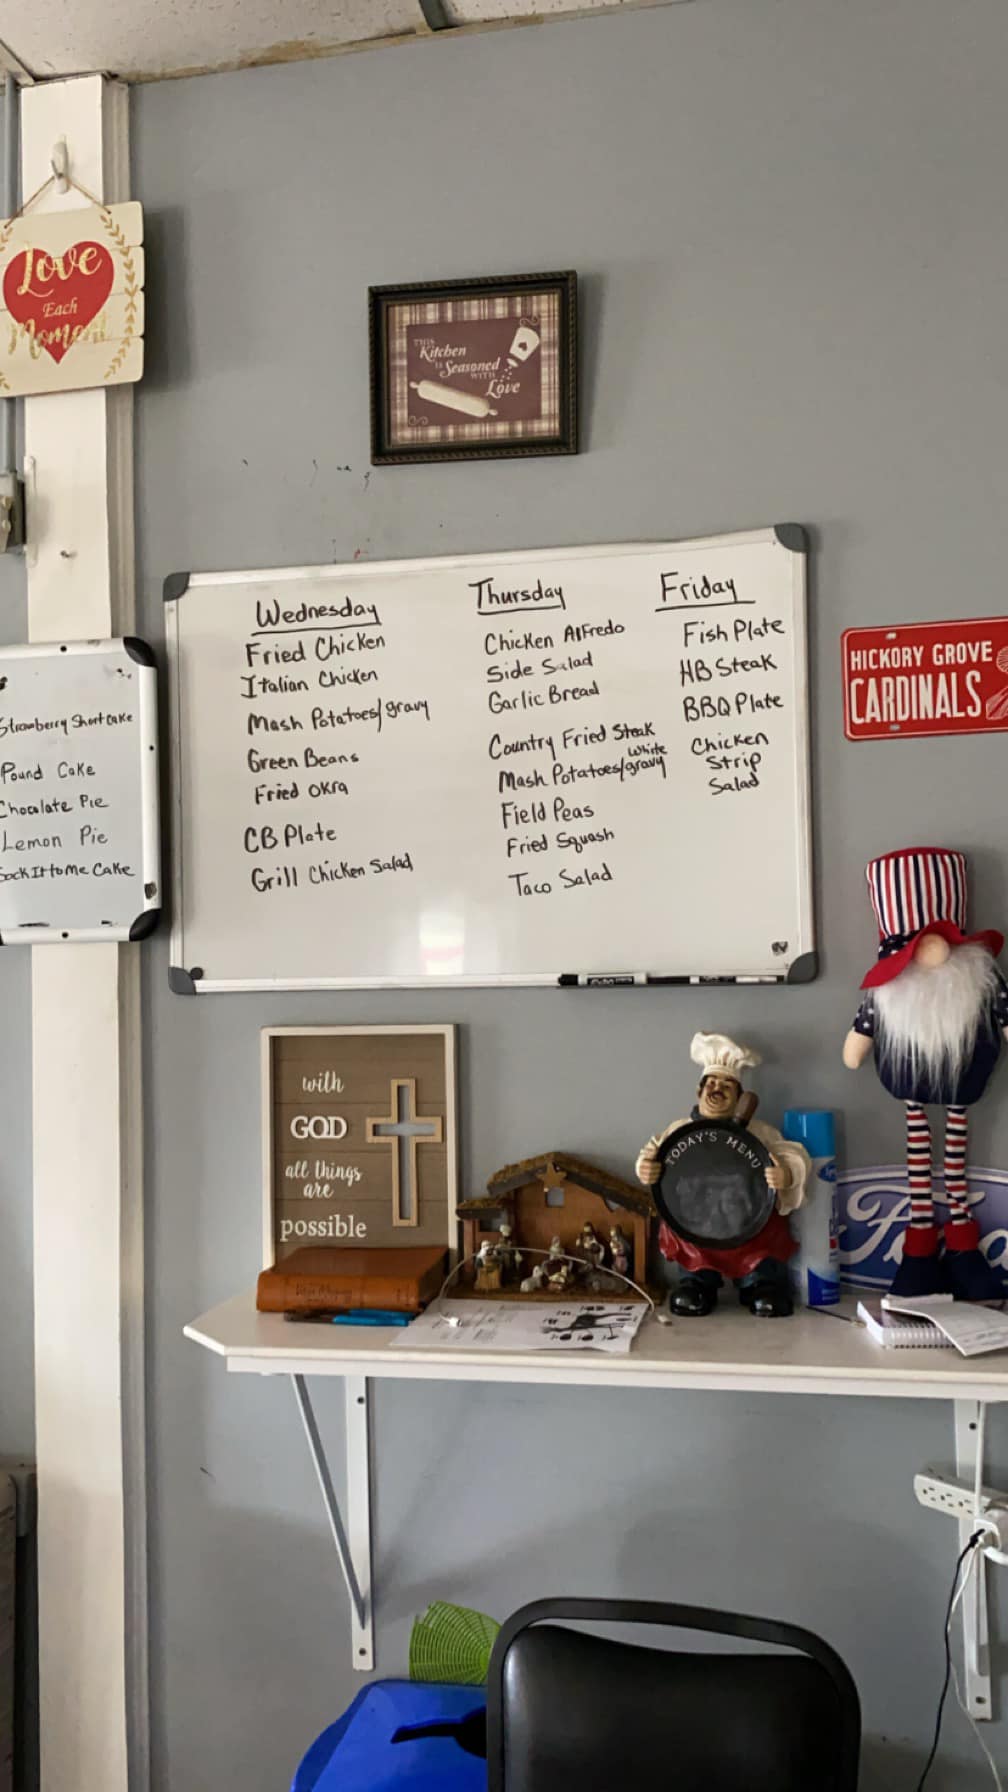 Love
Each
Moment
THIS
Kitchen
IS Seasoned
WITH
Love
Wednesday
Fried Chicken
Italian Chicken
Mash Potatoes/gravy
Green Beans
Fried Okra
CB Plate
Grill Chicken Salad
Thursday
Chicken Alfredo
Side Salad
Garlic Bread
Country Fried Steak
White
Mash Potatoes/gravy
Field Peas
Fried Squash
Taco Salad
Friday
Fish Plate
HB Steak
BBQ Plate
Chicken
Strip
Salad
Strawberry Shortcake
Pound Cake
Chocolate Pie
Lemon Pie
Sock It to Me Cake
HICKORY GROVE
CARDINALS
with
GOD
all things
are
possible
TODAY'S MENU
Ford